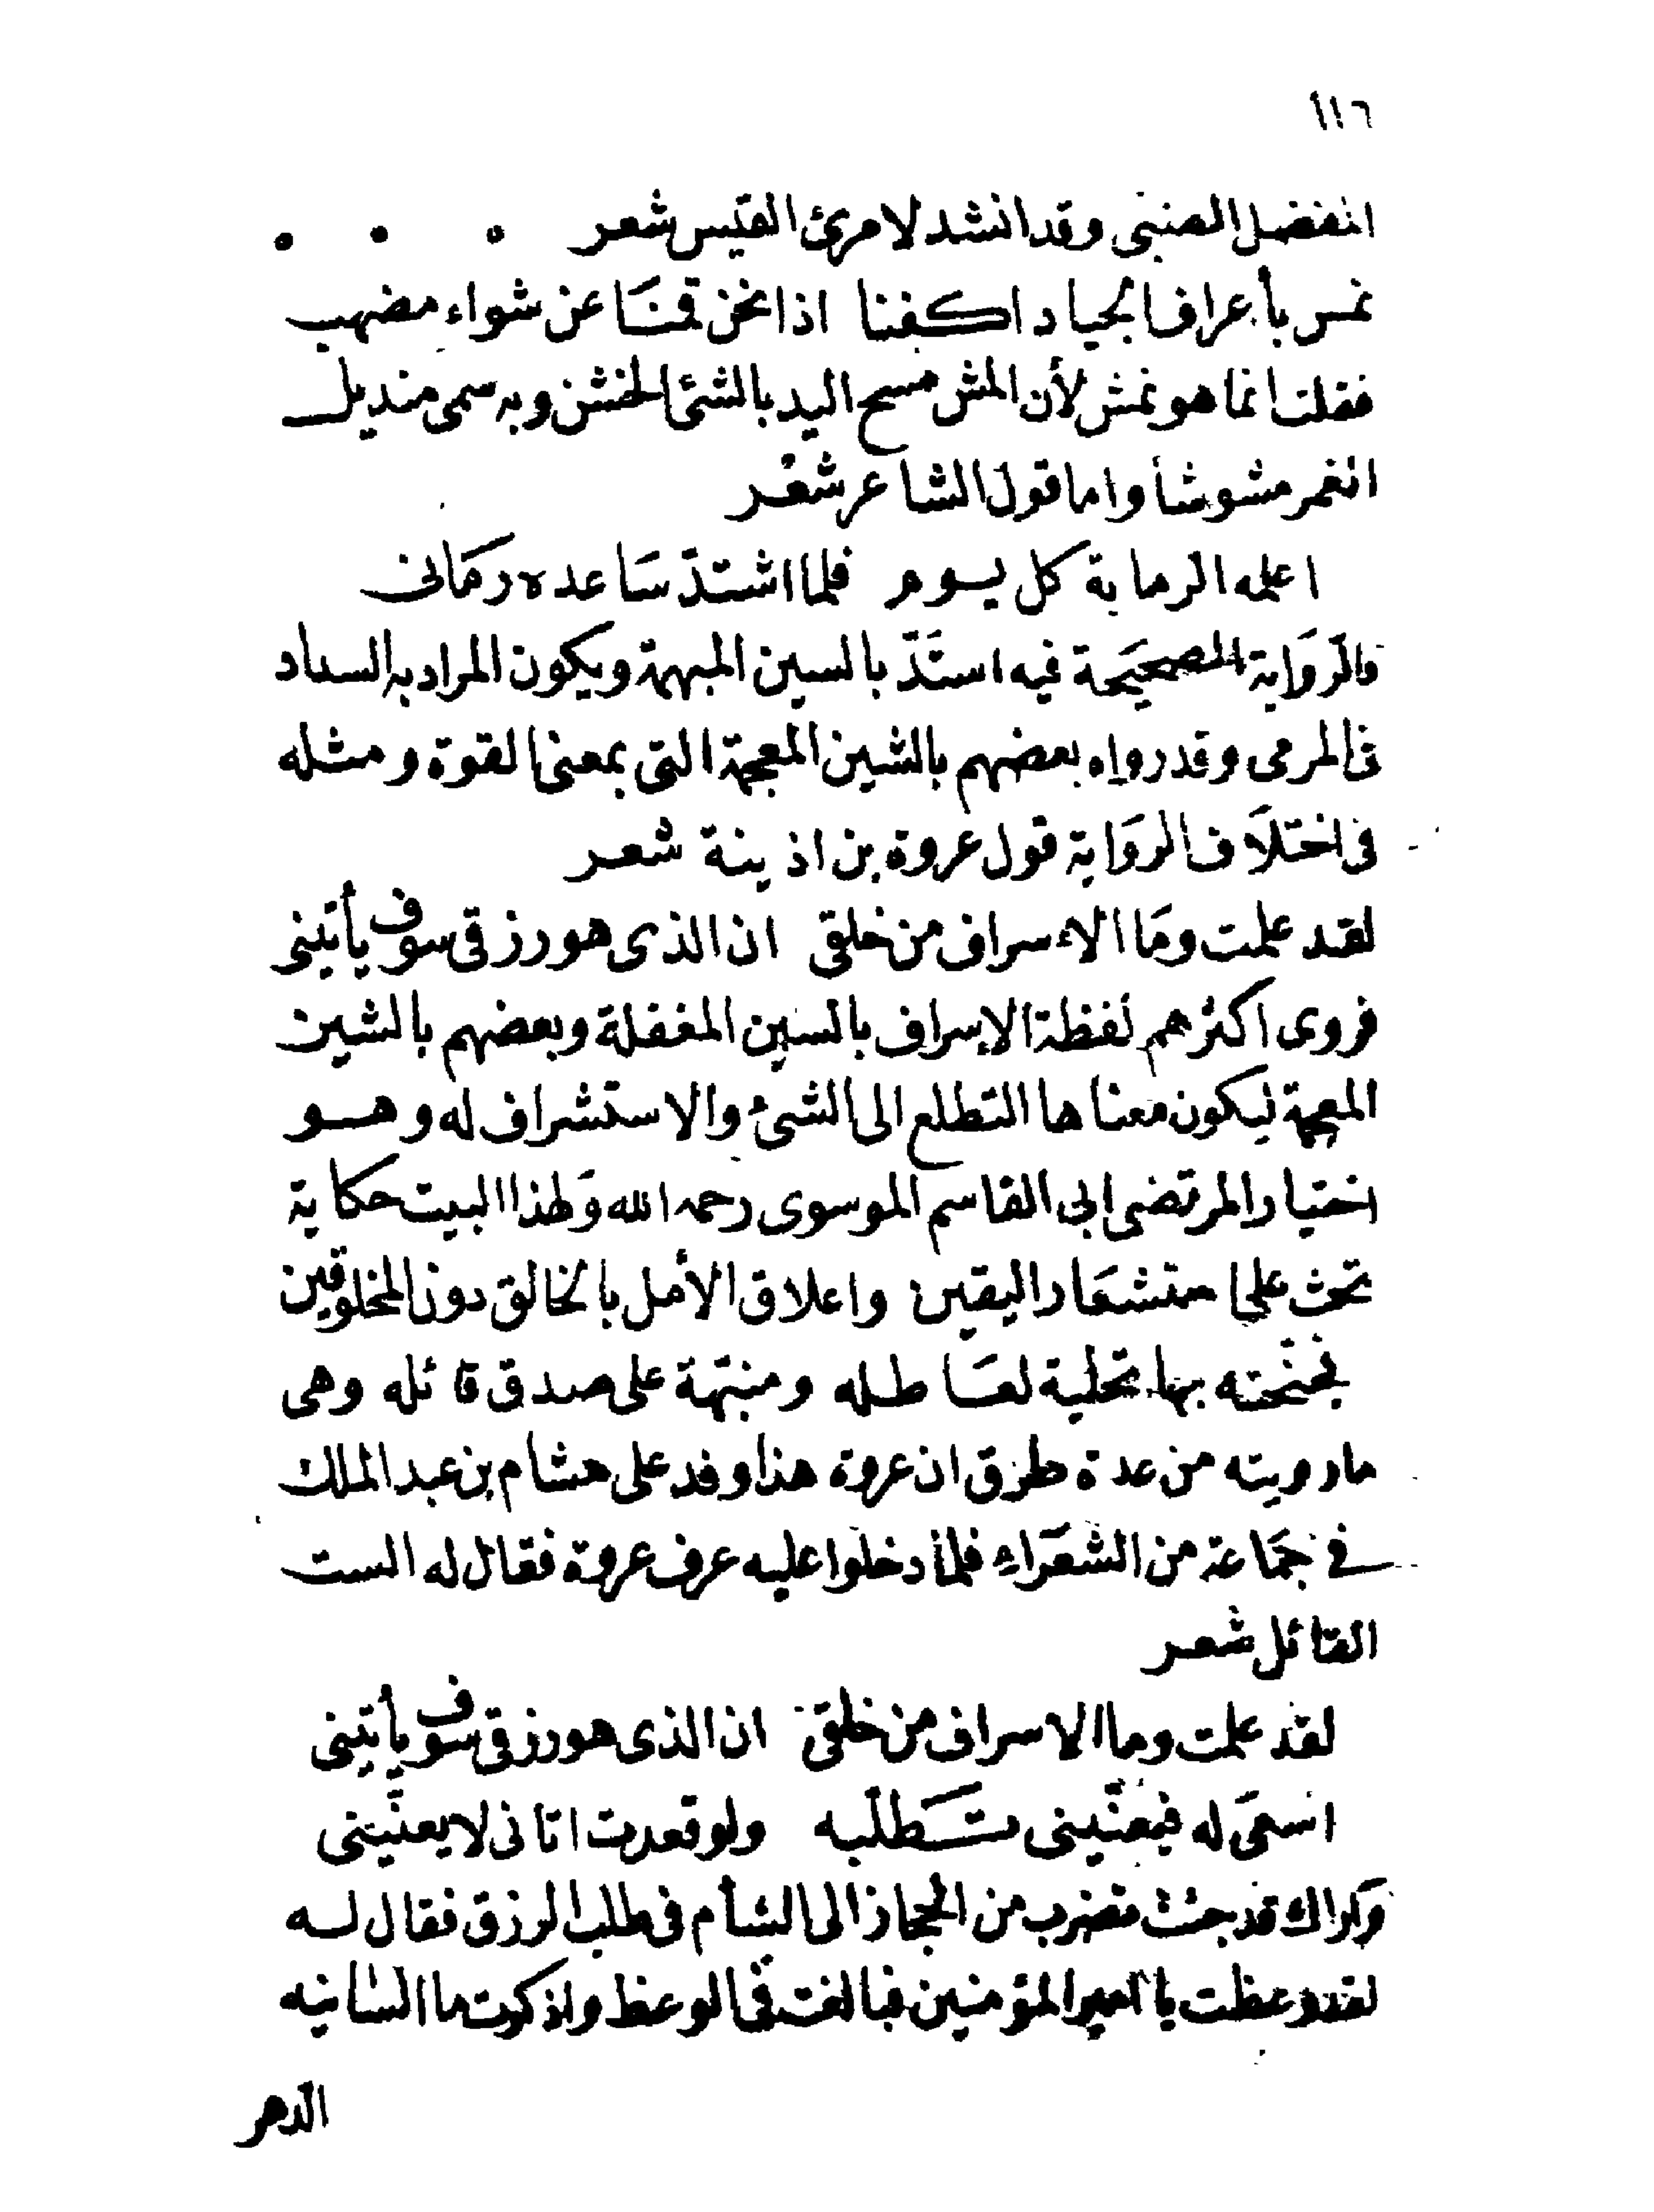 ١١٦
المفضل الضبى وقد انشد لامرئ القيس شعر
نمس بأعراف الجياد اكفنا اذا نحن قمنا عن شواء مضهب
فقلت انما هو نمش لأن المش مسح اليد بالشئ الخشن وبه سمى منديل
الغمر مشوشأ واما قول الشاعر شعر
اعلمه الرماية كل يوم فلما اشتدّ سَاعده رمَانى
والرّوَاية الصحيَحة فيه استَدّ بالسين المبهمة ويكون المراد به السداد
فى المرمى وقد رواه بعضهم بالشين المعجمة التى بمعنى القوة ومثله
فى اختلَاف الروَاية قول عروة بن اذينة شعر
لقد علمت ومَا الاءسراف من خلقى ان الذى هو رزقى سوف يأتينى
فروى اكثرهم لفظة الإسراف بالسين المغفلة وبعضهم بالشين
المعجمة ليكون معناها التطلع الى الشئ والاستشراف له وهو
اختيار المرتضى ابى القاسم الموسوى رحمه الله وَلهذا البيت حكاية
تحث على استشعَار اليقين واعلاق الأمل بالخالق دون المخلوقين
فختمته بها تحلية لعَاطله ومنبّهة على صدق قائله وهى
مارويته من عدة طرق ان عروة هذا وفد على هشام بن عبد الملك
فى جمَاعة من الشعَراء فلما دخلوا عليه عرف عروة فقال له الست
القائل شعر
لقد علمت وما الاسراف من خلقى ان الذى هو رزقى سوف يأتينى
اسعَى له فيعنّينى تَطلّبه ولو قعدت اتانى لا يعنّينى
وَاراك قد جئت تضرب من الحجاز الى الشأم فى طلب الرزق فقال له
لقد وعظت يا امير المؤمنين فبالغت فى الوعظ واذكرت ما انسانيه
الدهر